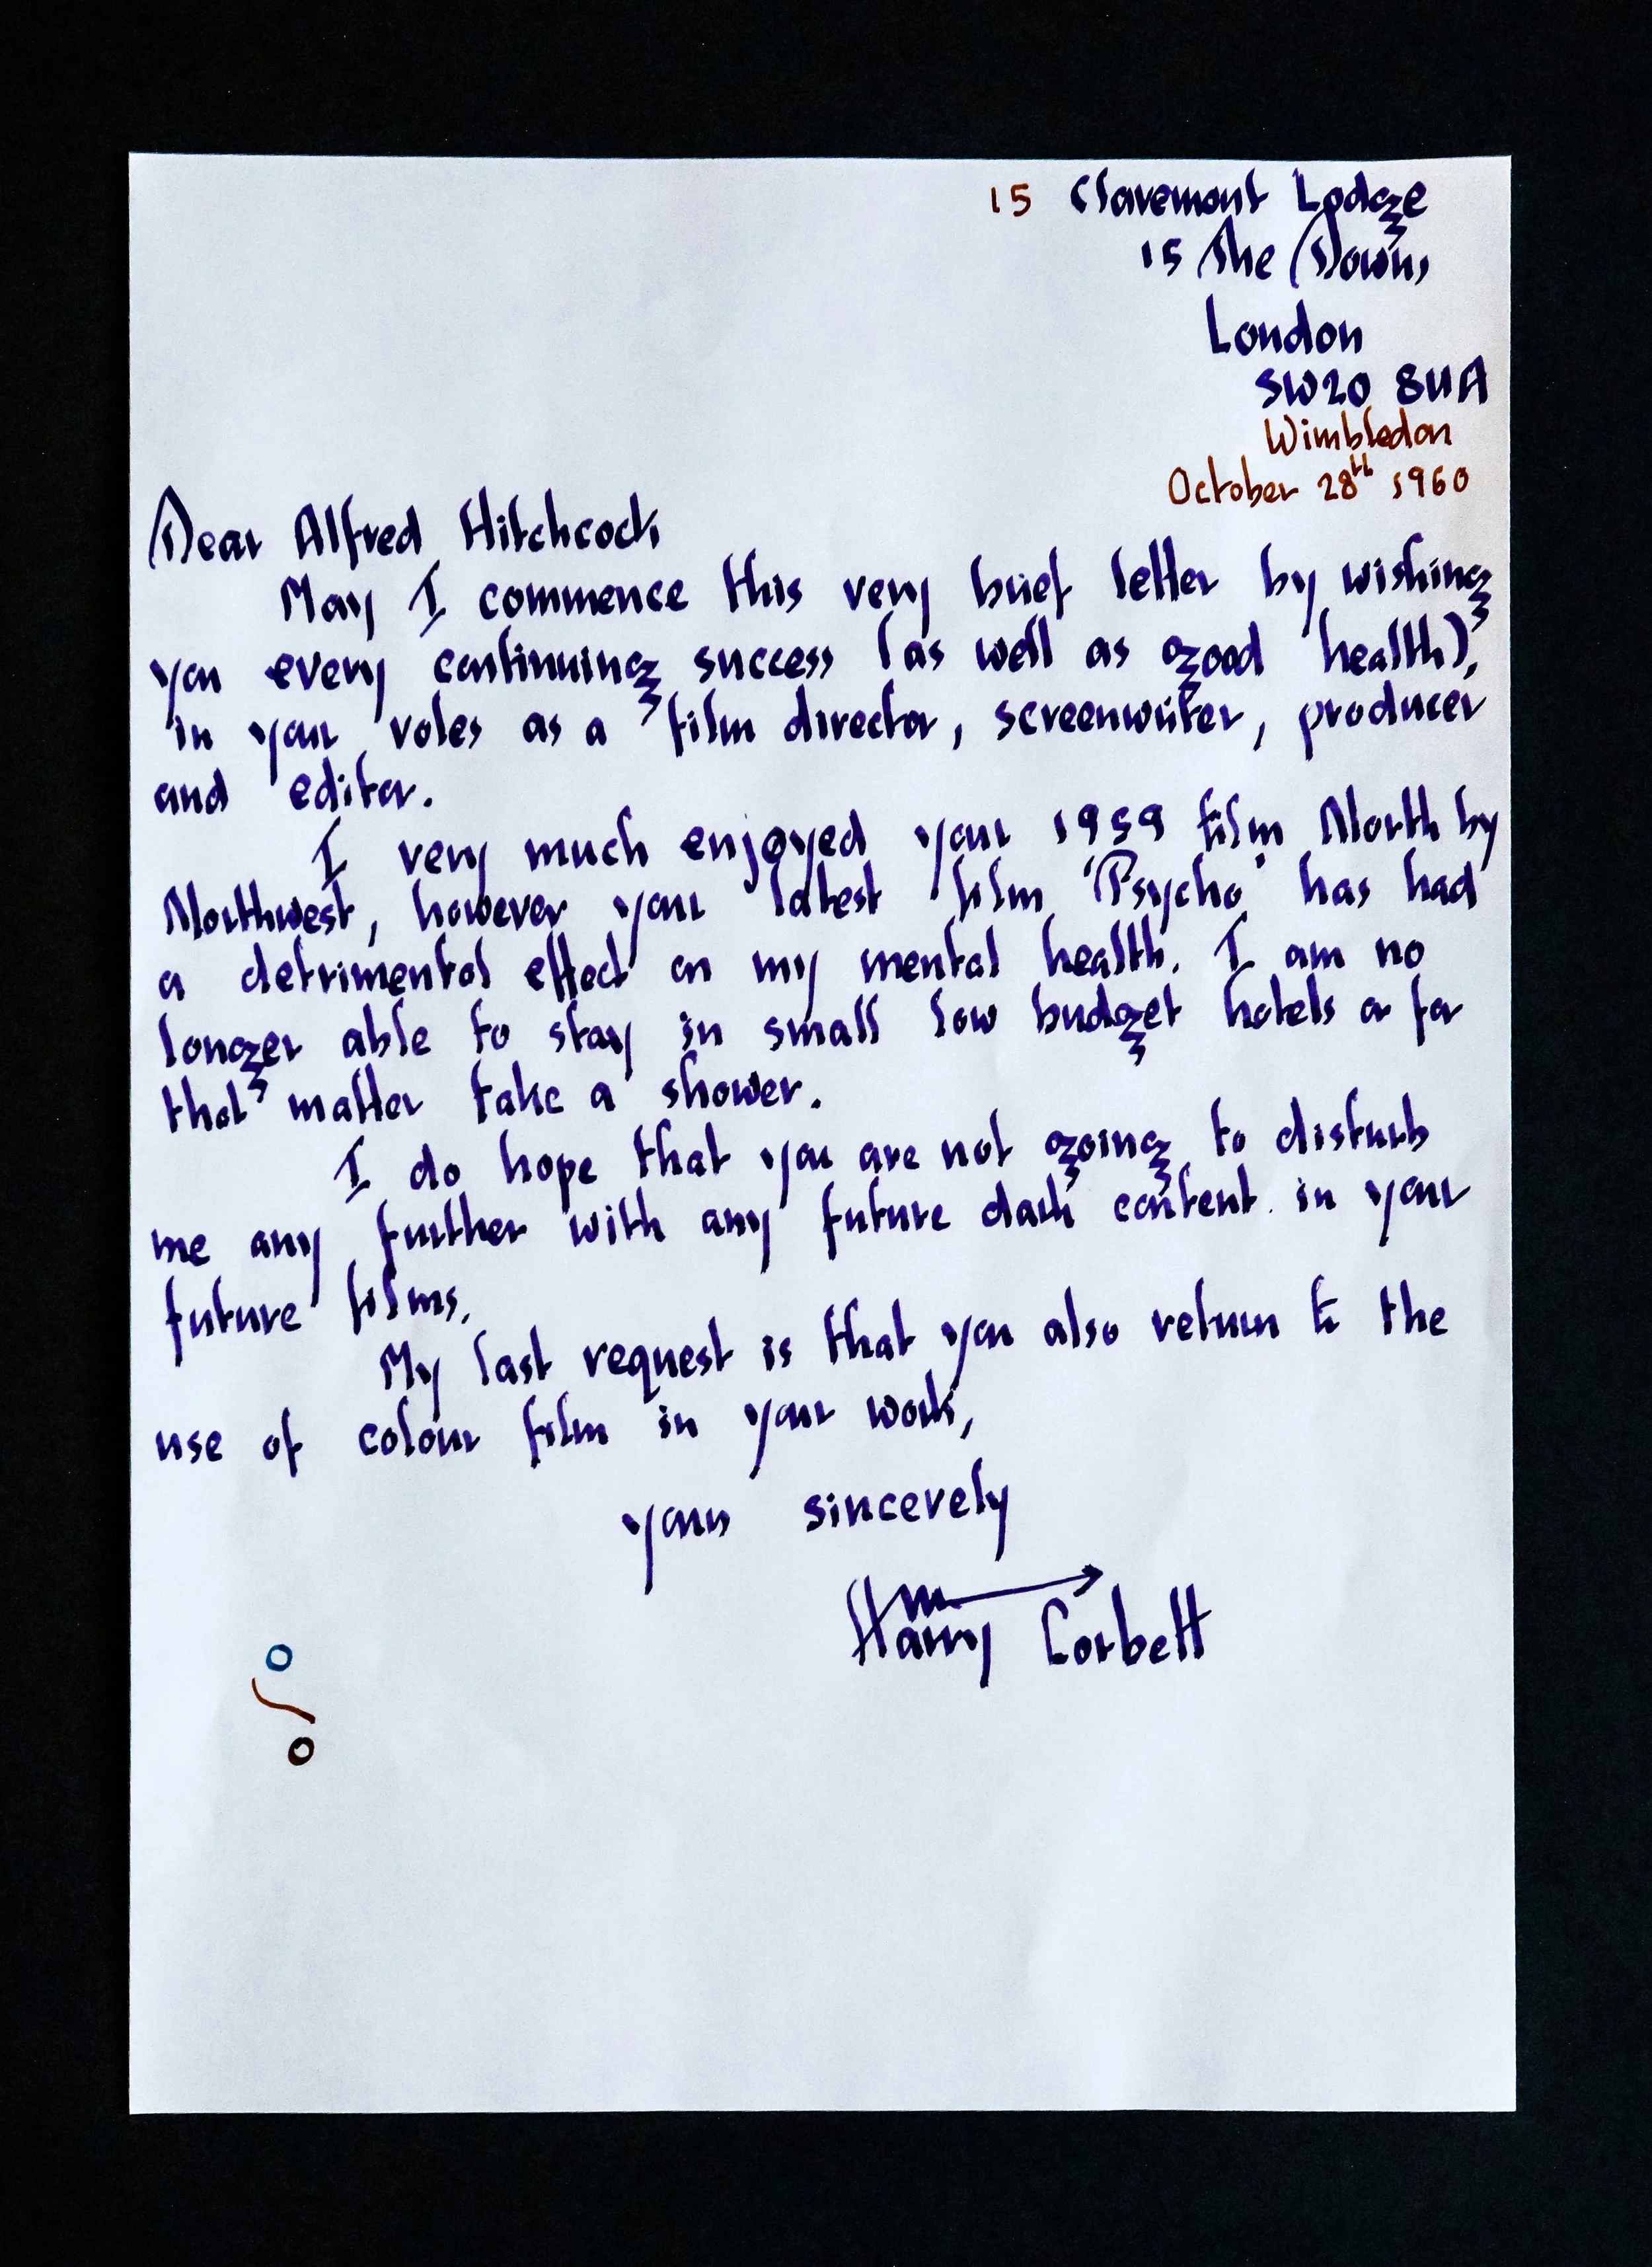 15 Claremont Lodge
15 The Downs
London
SW20 8UA
Wimbledon
October 28th 1960
Dear Alfred Hitchcock
May I commence this very brief letter by wishing
you every continuing success (as well as good health),
in your roles as a film director, screenwriter, producer
and editor.
I very much enjoyed your 1959 film North by
Northwest, however your latest film 'Psycho' has had
a detrimental effect on my mental health. I am no
longer able to stay in small low budget hotels or for
that matter take a shower.
I do hope that you are not going to disturb
me any further with any future dark content in your
future films.
My last request is that you also return to the
use of colour film in your work,
yours sincerely
Harry Corbett